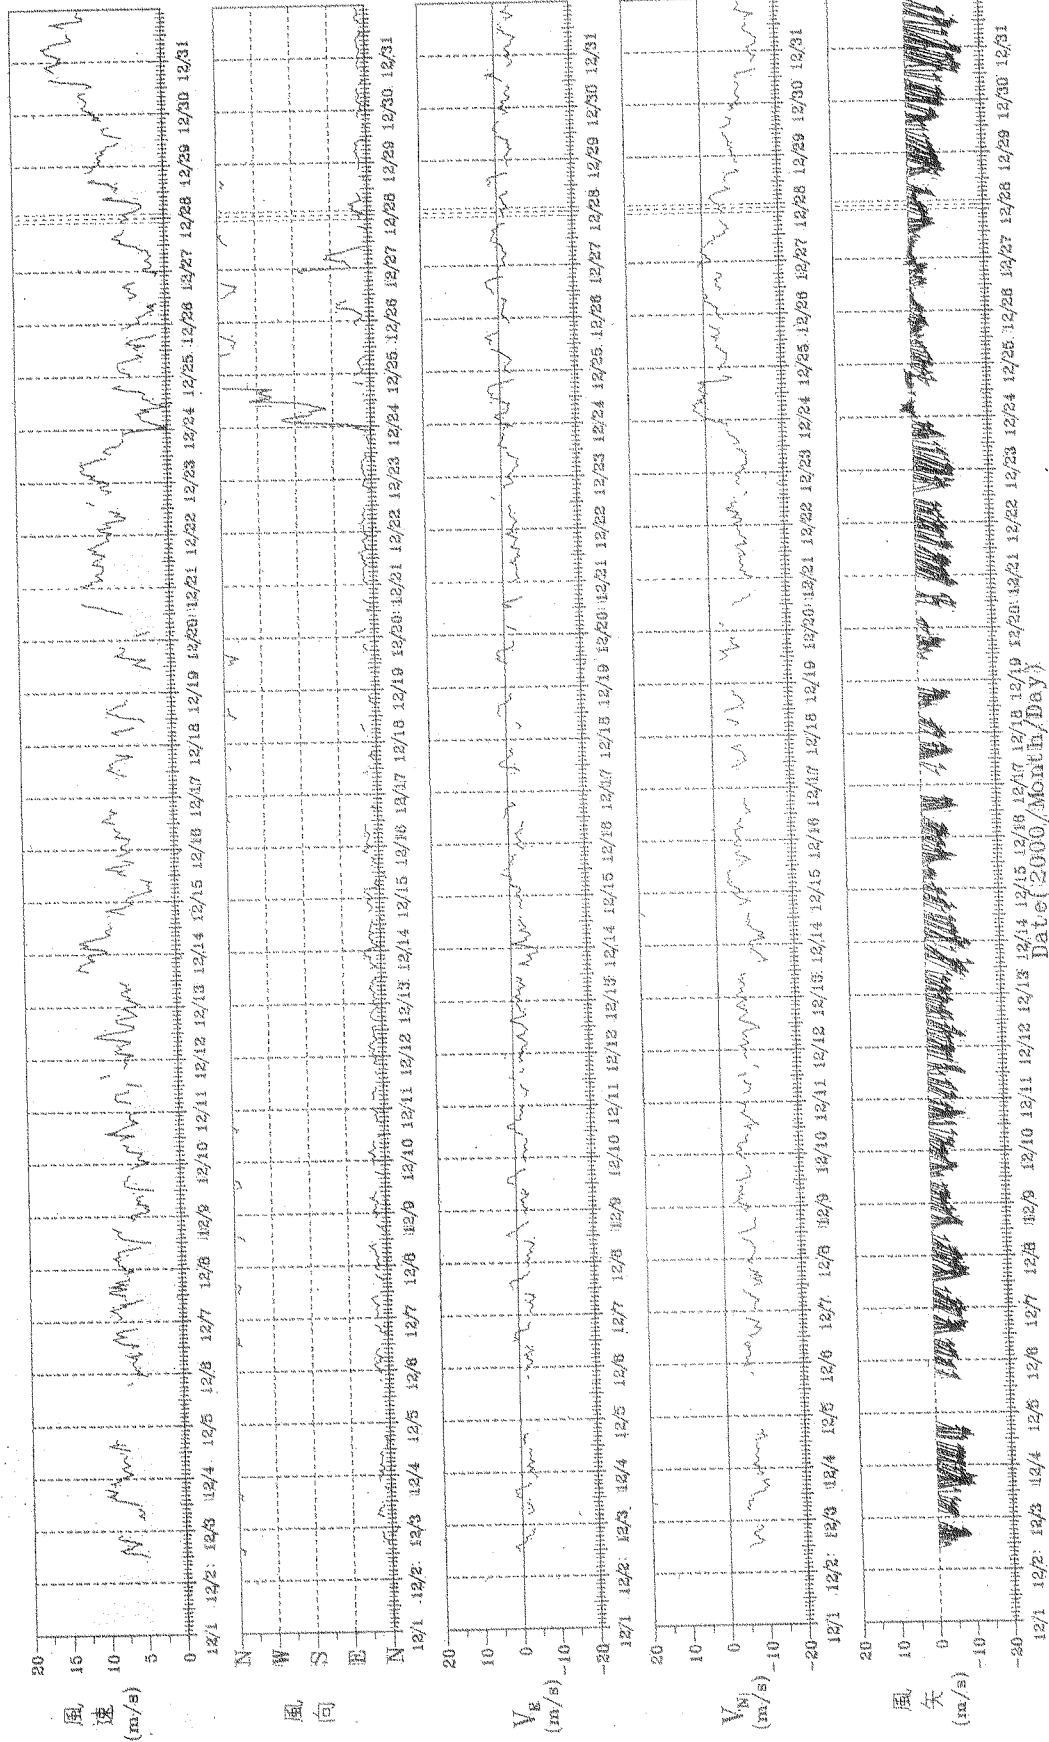 風速
(m/s)
20
15
10
5
0
12/1 12/2 12/3 12/4 12/5 12/6 12/7 12/8 12/9 12/10 12/11 12/12 12/13 12/14 12/15 12/16 12/17 12/18 12/19 12/20 12/21 12/22 12/23 12/24 12/25 12/26 12/27 12/28 12/29 12/30 12/31
風向
N
W
S
E
N
12/1 12/2 12/3 12/4 12/5 12/6 12/7 12/8 12/9 12/10 12/11 12/12 12/13 12/14 12/15 12/16 12/17 12/18 12/19 12/20 12/21 12/22 12/23 12/24 12/25 12/26 12/27 12/28 12/29 12/30 12/31
V_E
(m/s)
20
10
0
-10
-20
12/1 12/2 12/3 12/4 12/5 12/6 12/7 12/8 12/9 12/10 12/11 12/12 12/13 12/14 12/15 12/16 12/17 12/18 12/19 12/20 12/21 12/22 12/23 12/24 12/25 12/26 12/27 12/28 12/29 12/30 12/31
V_N
(m/s)
20
10
0
-10
-20
12/1 12/2 12/3 12/4 12/5 12/6 12/7 12/8 12/9 12/10 12/11 12/12 12/13 12/14 12/15 12/16 12/17 12/18 12/19 12/20 12/21 12/22 12/23 12/24 12/25 12/26 12/27 12/28 12/29 12/30 12/31
風矢
(m/s)
20
10
0
-10
-20
12/1 12/2 12/3 12/4 12/5 12/6 12/7 12/8 12/9 12/10 12/11 12/12 12/13 12/14 12/15 12/16 12/17 12/18 12/19 12/20 12/21 12/22 12/23 12/24 12/25 12/26 12/27 12/28 12/29 12/30 12/31
Date(2000/Month/Day)